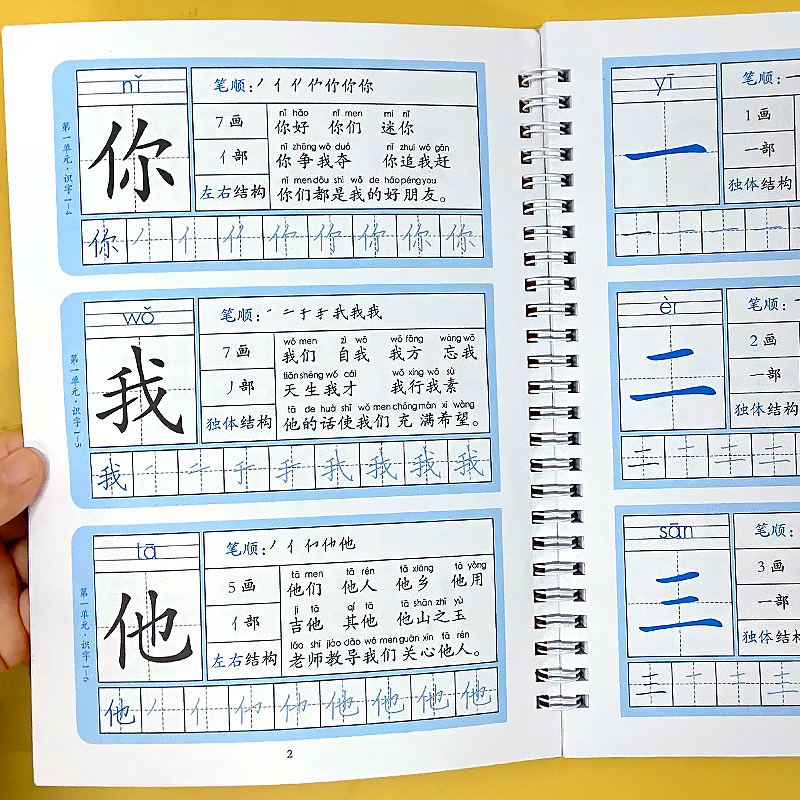 第一单元·识字1-4
nǐ
你
笔顺:
7画
亻部
左右结构
nǐ hǎo nǐ men mí nǐ
你好 你们 迷你
nǐ zhēng wǒ duó nǐ zhuī wǒ gǎn
你争我夺 你追我赶
nǐ men dōu shì wǒ de hǎo péng you
你们都是我的好朋友。
你 你 你 你 你
第一单元·识字1-5
wǒ
我
笔顺:
7画
丿部
独体结构
wǒ men zì wǒ wǒ fāng wàng wǒ
我们 自我 我方 忘我
tiān shēng wǒ cái wǒ xíng wǒ sù
天生我才 我行我素
tā de huà shǐ wǒ men chōng mǎn xī wàng
他的话使我们充满希望。
我 我 我 我
第一单元·识字1-6
tā
他
笔顺:
5画
亻部
左右结构
tā men tā rén tā xiāng tā yòng
他们 他人 他乡 他用
jí tā qí tā tā shān zhī yù
吉他 其他 他山之玉
lǎo shī jiào dǎo wǒ men guān xīn tā rén
老师教导我们关心他人。
他 他 他 他 他
2
yī
一
笔顺:
1画
一部
独体结构
一 一 一 一
èr
二
笔顺:
2画
二部
独体结构
二 二 二
sān
三
笔顺:
3画
一部
独体结构
三 三